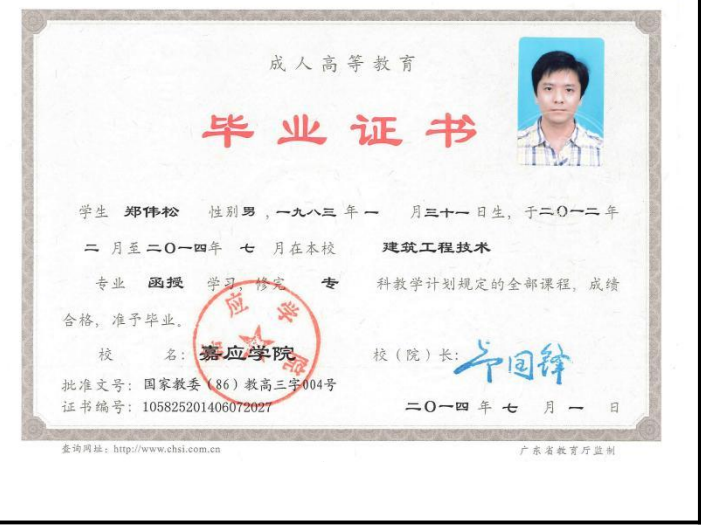 成人高等教育
毕业证书
学生 郑伟松 性别男，一九八三年一 月三十一日生，于二〇一二年
二 月至二〇一四年 七 月在本校 建筑工程技术
专业 函授 学习，修完 专 科教学计划规定的全部课程，成绩
合格，准予毕业。
校 名：嘉应学院 校（院）长：
批准文号：国家教委（86）教高三字004号
证书编号：105825201406072027 二〇一四 年 七 月 一 日
查询网址：http://www.chsi.com.cn 广东省教育厅监制